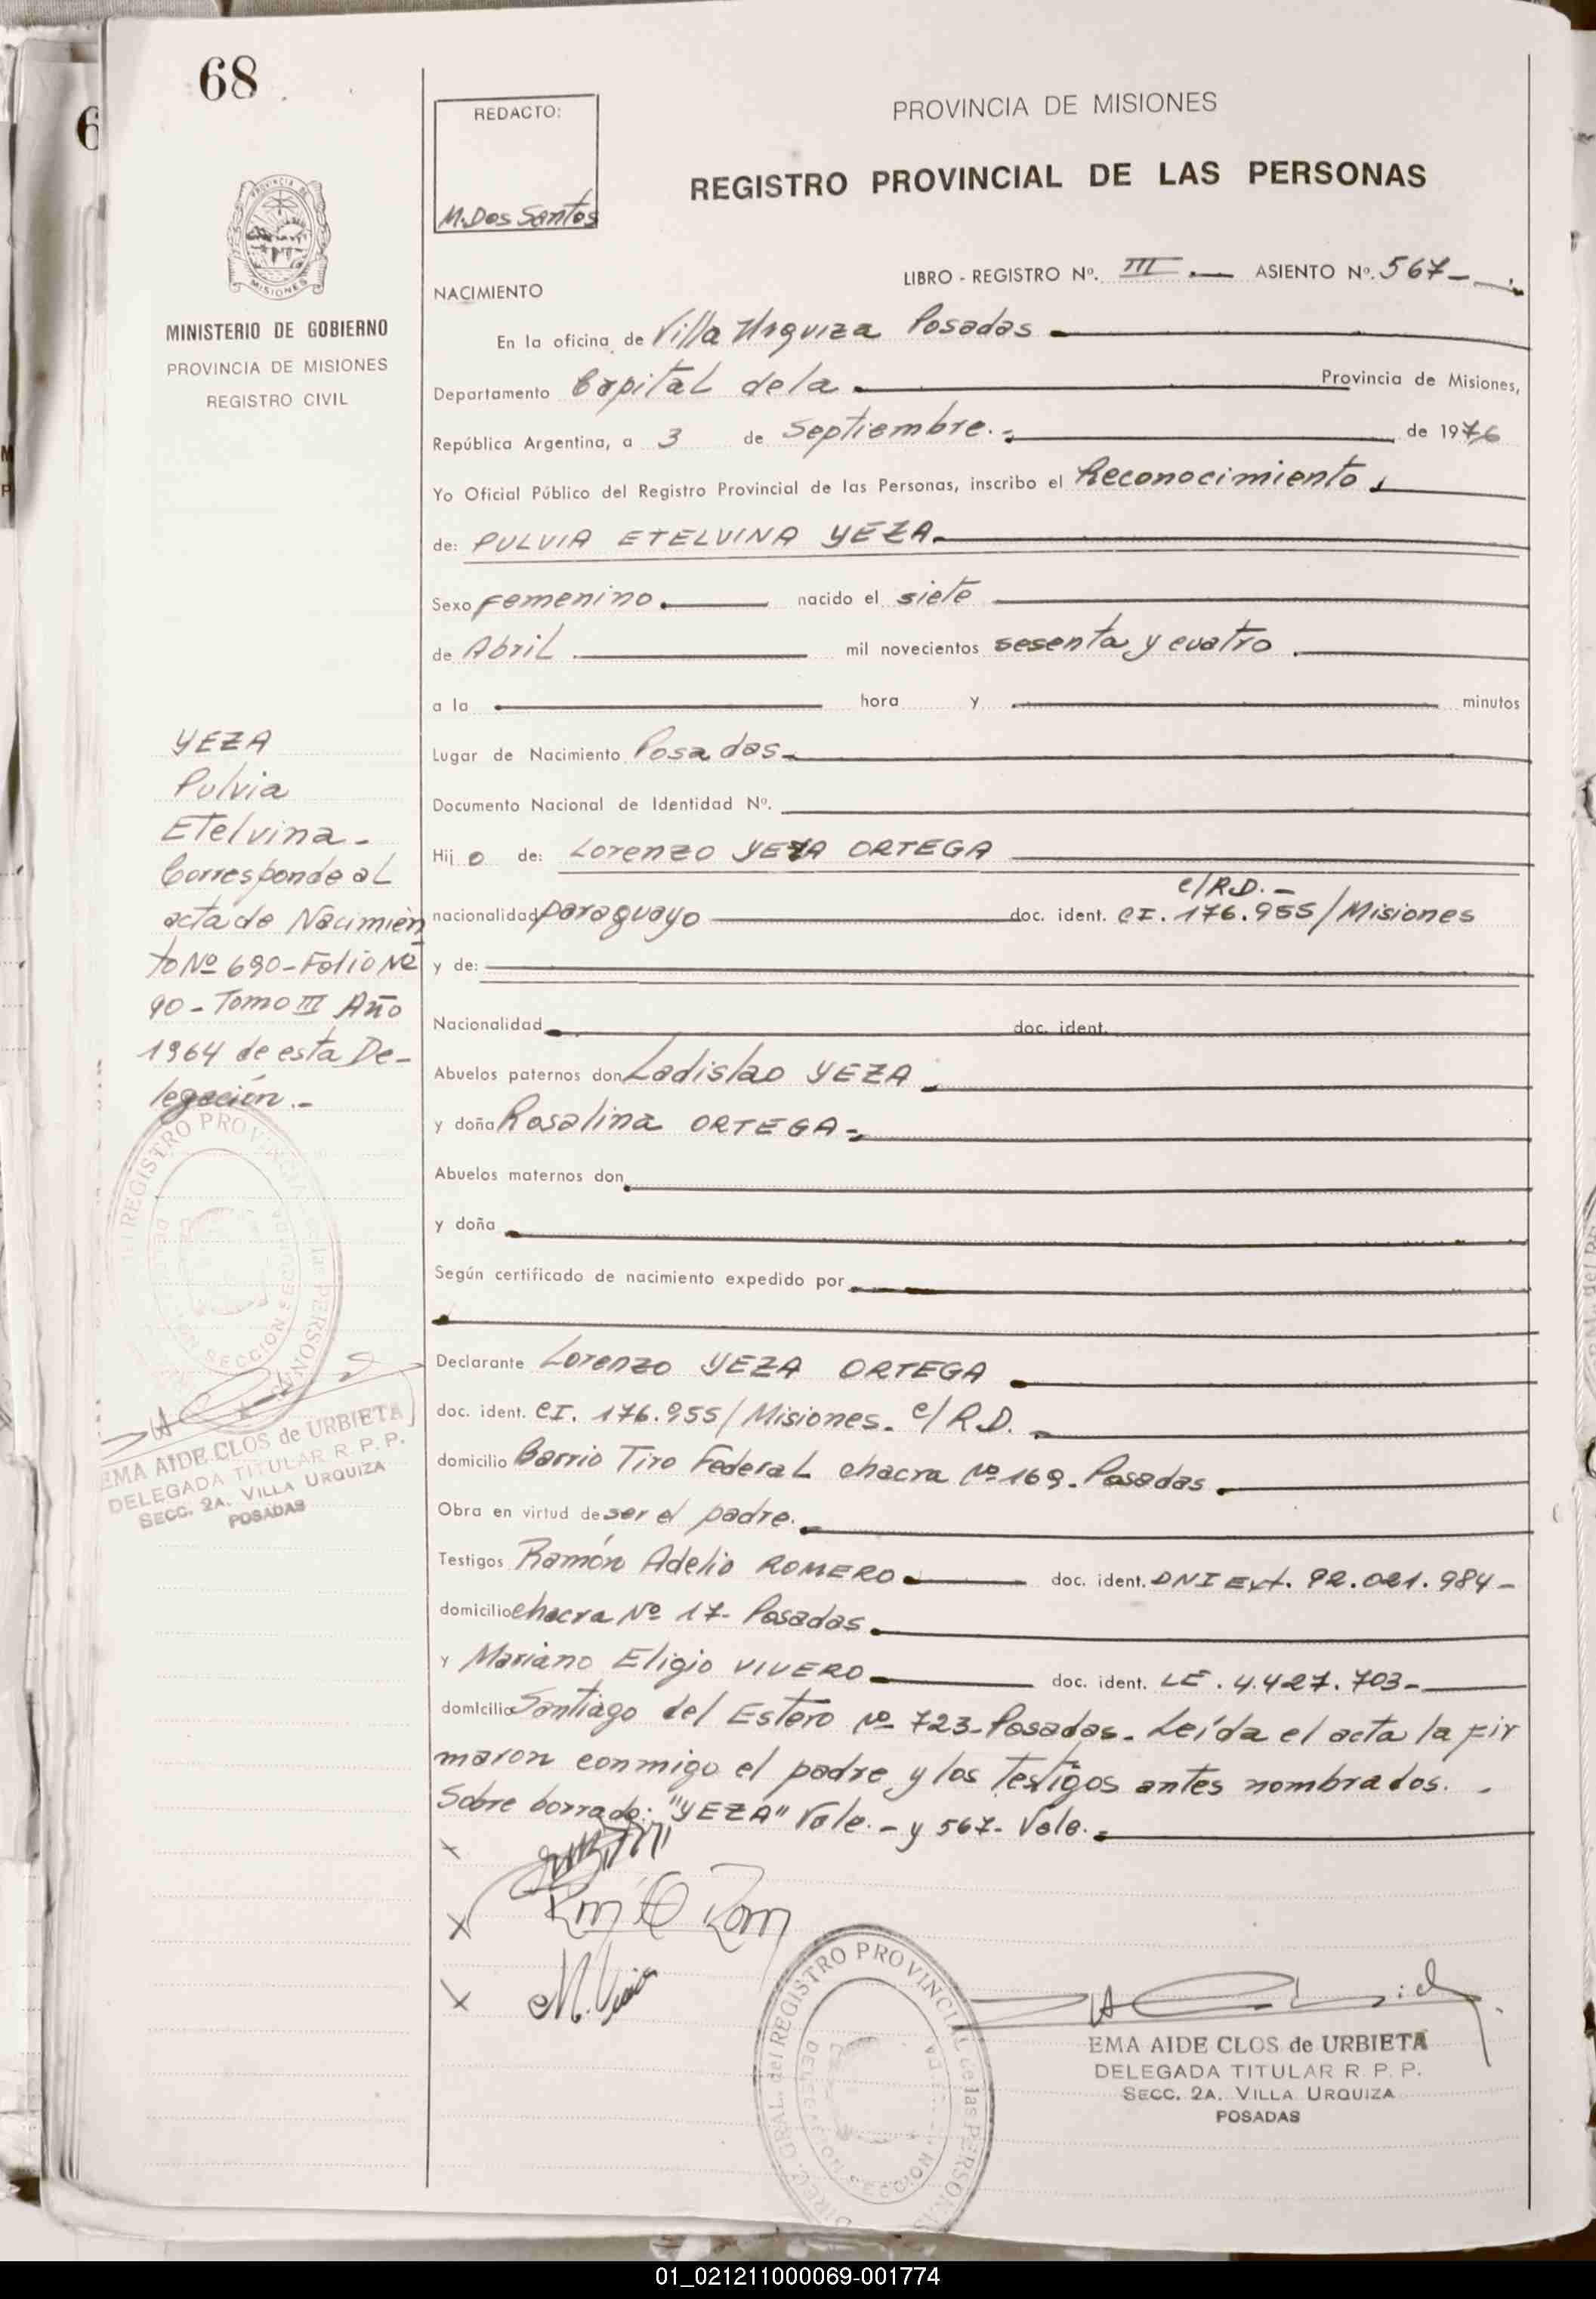 68
REDACTO:
M. Dos Santos
PROVINCIA DE MISIONES
REGISTRO PROVINCIAL DE LAS PERSONAS
MISIONES
MINISTERIO DE GOBIERNO
PROVINCIA DE MISIONES
REGISTRO CIVIL
LIBRO - REGISTRO Nº. III.— ASIENTO Nº. 567-
NACIMIENTO
En la oficina de Villa Urquiza Posadas
Departamento Capital de la Provincia de Misiones,
República Argentina, a 3 de Septiembre.- de 1976
Yo Oficial Público del Registro Provincial de las Personas, inscribo el Reconocimiento
de: PULVIA ETELVINA YEZA
Sexo Femenino. nacido el siete
de Abril mil novecientos sesenta y cuatro
a la hora y minutos
Lugar de Nacimiento Posadas
Documento Nacional de Identidad Nº.
Hijo de: Lorenzo YEZA ORTEGA
c/R.D.-
nacionalidad paraguayo doc. ident. CI. 176.955/Misiones
y de:
Nacionalidad doc. ident.
Abuelos paternos don Ladislao YEZA
y doña Rosalina ORTEGA
Abuelos maternos don
y doña
Según certificado de nacimiento expedido por
Declarante Lorenzo YEZA ORTEGA
doc. ident. CI. 176.955/Misiones. c/R.D.
domicilio Barrio Tiro Federal chacra Nº 169. Posadas
Obra en virtud de ser el padre.
Testigos Ramón Adelio ROMERO doc. ident. DNI Ext. 92.021.984-
domicilio chacra Nº 17- Posadas
y Mariano Eligio VIVERO doc. ident. LE. 4.427.703-
domicilio Santiago del Estero Nº 723-Posadas. Leída el acta la fir
maron conmigo el padre y los testigos antes nombrados.
Sobre borrado: "YEZA" Vale.- y 567- Vale.
YEZA
Pulvia
Etelvina-
Corresponde al
acta de Nacimien
to Nº 690-Folio Nº
90-Tomo III Año
1964 de esta De-
legación.-
del REGISTRO PROVINCIAL de las PERSONAS
SECCION
EMA AIDE CLOS de URBIETA
DELEGADA TITULAR R. P. P.
SECC. 2A. VILLA URQUIZA
POSADAS
DIREC. GRAL. del REGISTRO PROVINCIAL de las PERSONAS
SECCION
EMA AIDE CLOS de URBIETA
DELEGADA TITULAR R. P. P.
SECC. 2A. VILLA URQUIZA
POSADAS
01_021211000069-001774